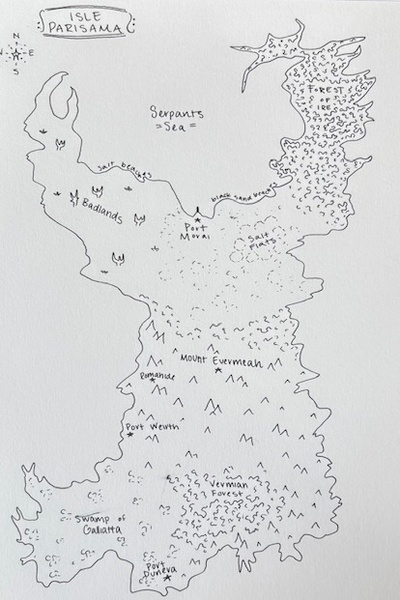 ISLE
PARISAMA
N
E
S
Serpants
Sea
FOREST
OF
IRE
salt beaches
black sand beaches
Badlands
Port
Morai
Salt
Flats
Mount Evermeah
Romahide
Port Weirth
Vermian
Forest
Swamp of
Galiatta
Port
Duneva